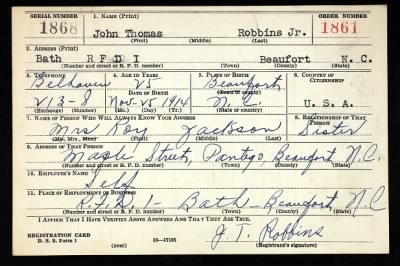 SERIAL NUMBER 1. NAME (Print) ORDER NUMBER
1868 John Thomas Robbins Jr. 1861
(First) (Middle) (Last)
2. ADDRESS (Print)
Bath R F D I Beaufort N. C.
(Number and street or R. F. D. number) (Town) (County) (State)
3. TELEPHONE 4. AGE IN YEARS 5. PLACE OF BIRTH 6. COUNTRY OF CITIZENSHIP
Belhaven 25 Beaufort
DATE OF BIRTH (Town or county)
213-J Nov-25 1914 N. C. U. S. A.
(Exchange) (Number) (Mo.) (Day) (Yr.) (State or country)
7. NAME OF PERSON WHO WILL ALWAYS KNOW YOUR ADDRESS 8. RELATIONSHIP OF THAT PERSON
Mrs Roy Jackson Sister
(Mr., Mrs., Miss) (First) (Middle) (Last)
9. ADDRESS OF THAT PERSON
Street, Pantego, Beaufort N.C.
(Number and street or R. F. D. number) (Town) (County) (State)
10. EMPLOYER'S NAME
Self
11. PLACE OF EMPLOYMENT OR BUSINESS
R.F.D. 1- Bath- Beaufort N.C
(Number and street or R. F. D. number) (Town) (County) (State)
I AFFIRM THAT I HAVE VERIFIED ABOVE ANSWERS AND THAT THEY ARE TRUE.
REGISTRATION CARD J. T. Robbins
D. S. S. Form 1 (over) 16-17105 (Registrant's signature)